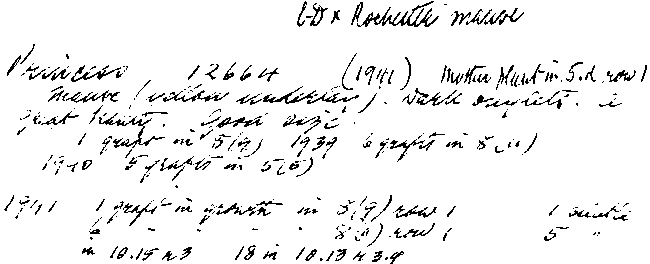 L-D x Rochester mauve
Princess 12664 (1941) Mother plant in 5.d row 1
mauve (yellow underlay). Dark anglets. a
great beauty. Good size.
1 graft in 8(9) 1939 6 grafts in 8(11)
1940 5 grafts in 5(8)
1941 1 graft in growth in 8(9) row 1 1
6 " 8(8) row 1 5 "
in 10.15 r3 18 in 10.13 r3.4